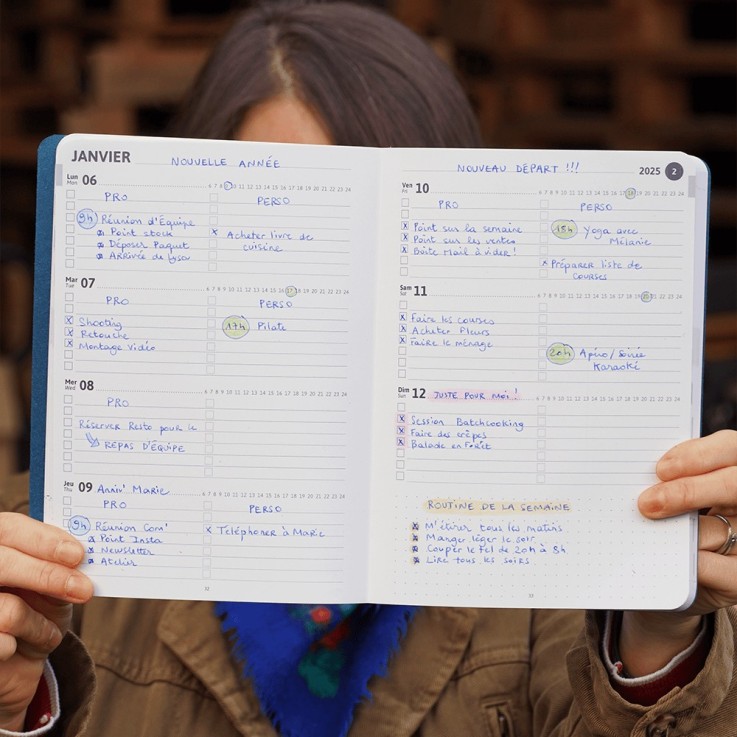 JANVIER
NOUVELLE ANNÉE
Lun
Mon
06
6 7 8 9 10 11 12 13 14 15 16 17 18 19 20 21 22 23 24
PRO
PERSO
9h Réunion d'Équipe
Point stock
Déposer Paquet
Arrivée de
x Acheter livre de
cuisine
Mar
Tue
07
6 7 8 9 10 11 12 13 14 15 16 17 18 19 20 21 22 23 24
PRO
PERSO
x Shooting
x Retouche
x Montage vidéo
17h Pilate
Mer
Wed
08
6 7 8 9 10 11 12 13 14 15 16 17 18 19 20 21 22 23 24
PRO
Réserver Resto pour le
REPAS D'ÉQUIPE
Jeu
Thu
09 Anniv' Marie
6 7 8 9 10 11 12 13 14 15 16 17 18 19 20 21 22 23 24
PRO
PERSO
9h Réunion Com'
x Point Insta
x Newsletter
x Atelier
x Téléphoner à Marie
NOUVEAU DÉPART !!!
2025 2
Ven
Fri
10
6 7 8 9 10 11 12 13 14 15 16 17 18 19 20 21 22 23 24
PRO
PERSO
x Point sur la semaine
x Point sur les ventes
x Boîte Mail à vider !
18h Yoga avec
Mélanie
x Préparer liste de
courses
Sam
Sat
11
6 7 8 9 10 11 12 13 14 15 16 17 18 19 20 21 22 23 24
x Faire les courses
x Acheter fleurs
x Faire le ménage
20h Apéro/Soirée
Karaoké
Dim
Sun
12 JUSTE POUR MOI !
6 7 8 9 10 11 12 13 14 15 16 17 18 19 20 21 22 23 24
x Session Batchcooking
x Faire des crêpes
x Balade en Forêt
ROUTINE DE LA SEMAINE
x M'étirer tous les matins
x Manger léger le soir
x Couper le tel de 20h à 8h
x Lire tous les soirs